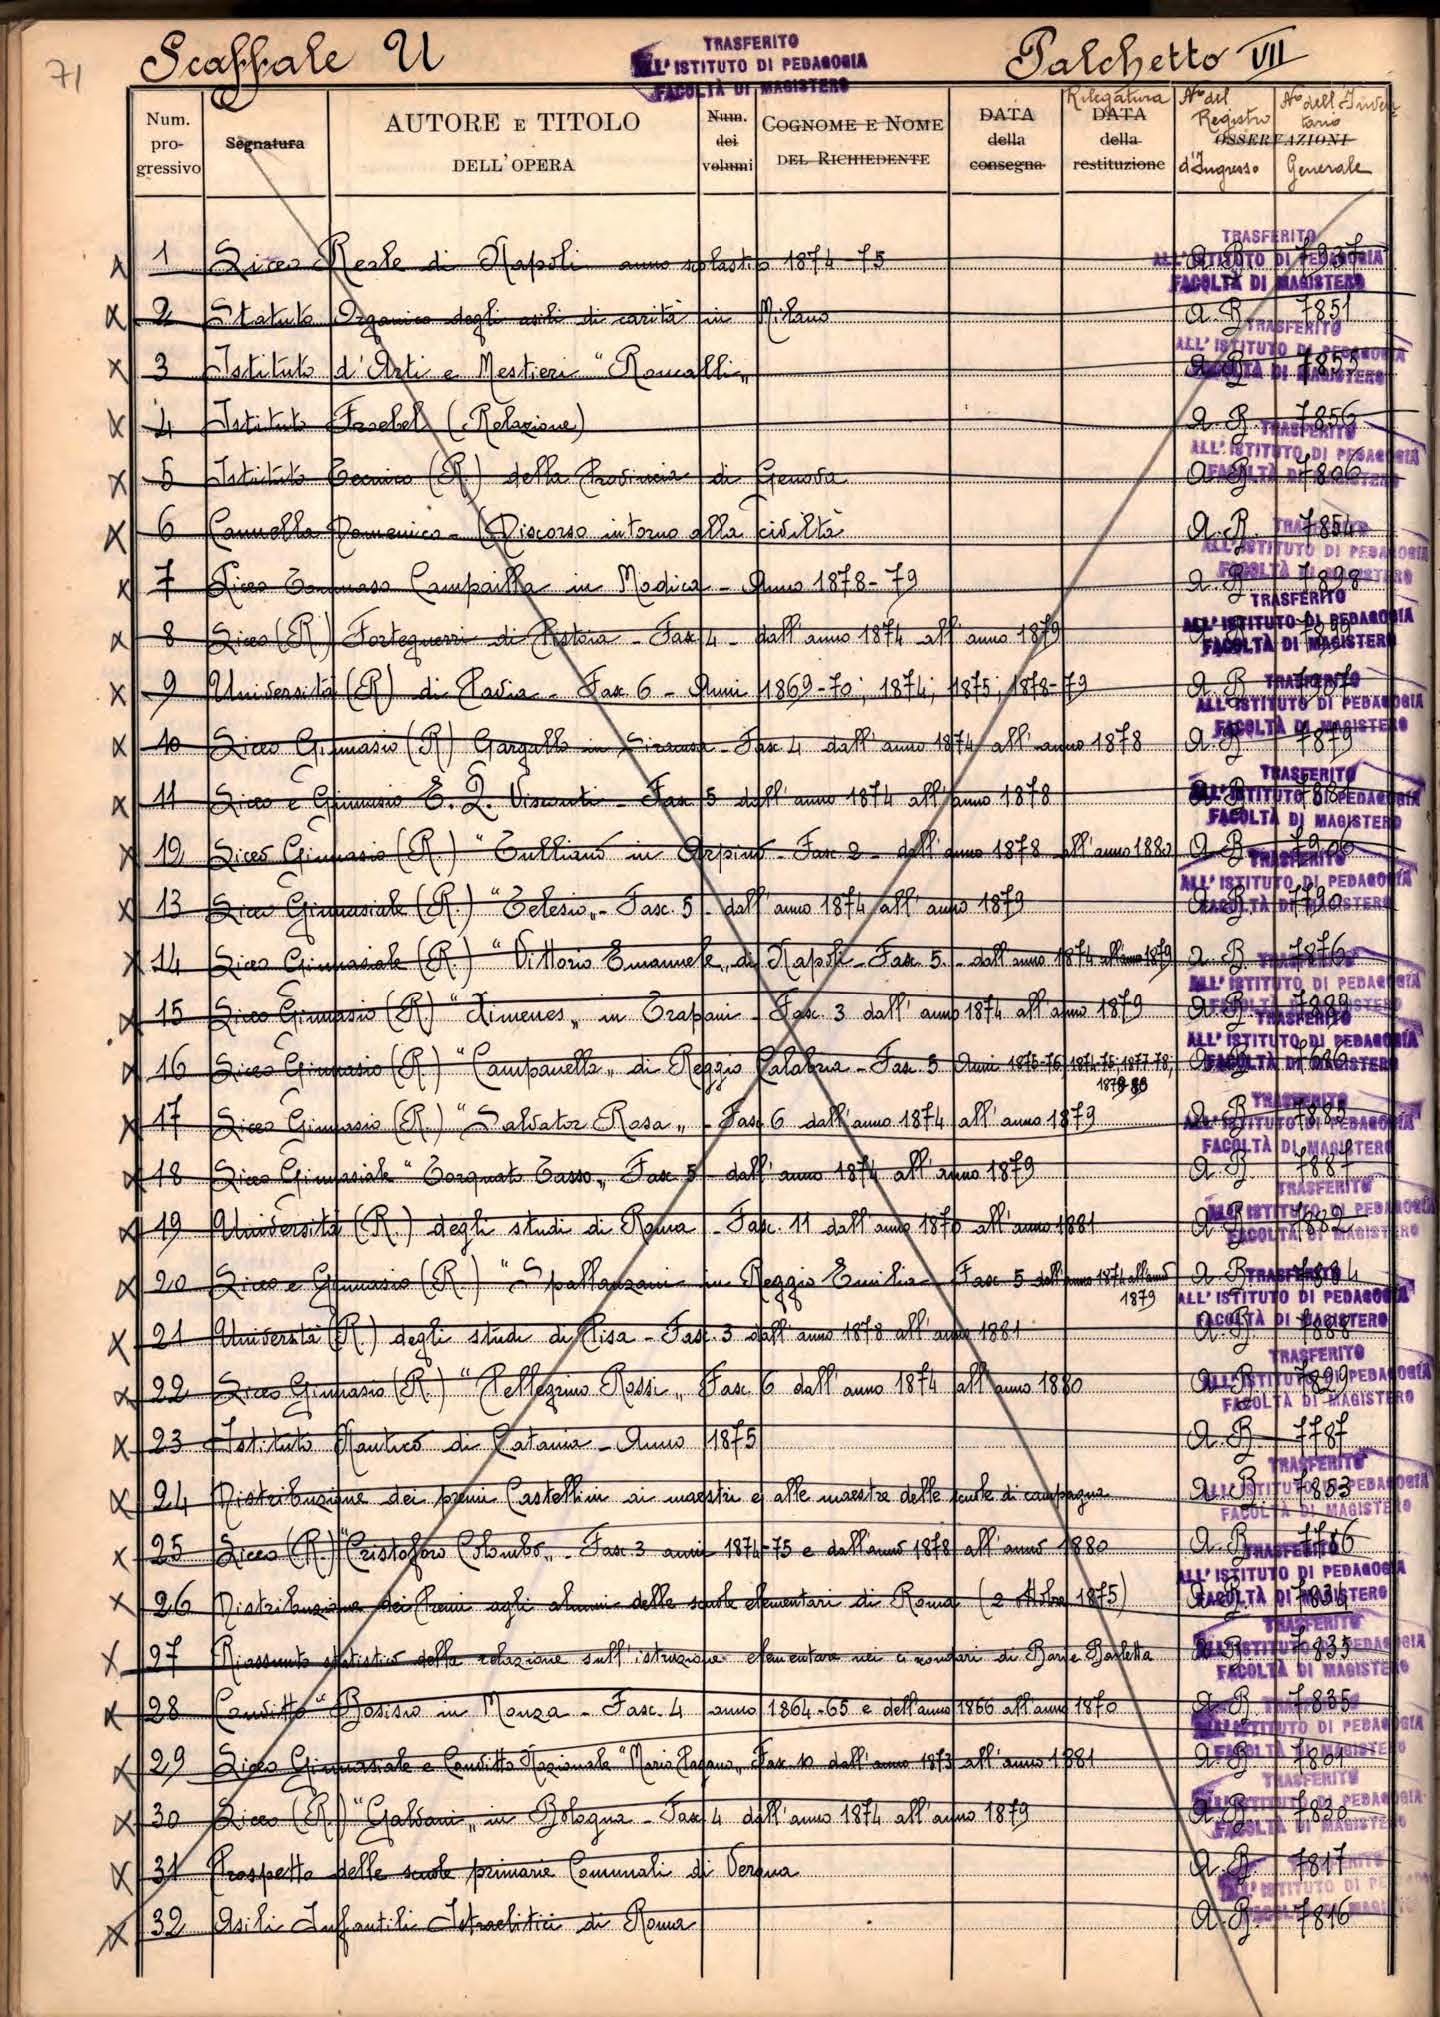 71
Scaffale U
TRASFERITO
ALL'ISTITUTO DI PEDAGOGIA
FACOLTÀ DI MAGISTERO
Palchetto VII
Num. progressivo Segnatura AUTORE E TITOLO DELL'OPERA Num. dei volumi COGNOME E NOME DEL RICHIEDENTE DATA della consegna Rilegatura DATA della restituzione OSSERVAZIONI No del Registro d'Ingresso No dell'Inventario Generale
1 Liceo Reale di Napoli anno scolastico 1874-75 A. B.
2 Statuto Organico degli asili di carità in Milano A. B. 7851
3 Istituto d'Arti e Mestieri "Roncalli" A. B. 7855
4 Istituto Froebel (Relazione) A. B. 7856
5 Istituto Tecnico (R.) della Provincia di Genova A. B. 7806
6 Domenico - (Discorso intorno alla civiltà A. B. 7854
7 Liceo Tommaso Campailla in Modica - Anno 1878-79 A. B. 7898
8 Liceo (R.) Forteguerri di Pistoia - Fasc. 4 - dall'anno 1874 all'anno 1879
9 Università (R) di Pavia - Fasc. 6 - Anni 1869-70; 1874; 1875; 1878-79 A. B.
10 Liceo Ginnasio (R) Gargallo in Siracusa - Fasc. 4 dall'anno 1874 all'anno 1878 A. B. 7879
11 Liceo e Ginnasio E. Q. Visconti - Fasc 5 dall'anno 1874 all'anno 1878 A. B.
12 Liceo Ginnasio (R.) "Tulliano in Arpino - Fasc. 2 - dall'anno 1878 all'anno 1880 A. B. 7906
13 Liceo Ginnasiale (R.) "Telesio" - Fasc. 5 - dall'anno 1874 all'anno 1879 A. B. 7790
14 Liceo Ginnasiale (R.) "Vittorio Emanuele" di Napoli - Fasc. 5 - dall'anno 1874 all'anno 1879 A. B. 7876
15 Liceo Ginnasio (R.) "Ximenes" in Trapani - Fasc. 3 dall'anno 1874 all'anno 1879 A. B. 7889
16 Liceo Ginnasio (R.) "Campanella" di Reggio Calabria - Fasc. 5 Anni 1875-76, 1874-75, 1877-78,
17 Liceo Ginnasio (R.) "Salvator Rosa" - Fasc 6 dall'anno 1874 all'anno 1879 A. B. 7885
18 Liceo Ginnasiale "Torquato Tasso" Fasc 5 dall'anno 1874 all'anno 1879 A. B. 7887
19 Università (R.) degli studi di Roma - Fasc. 11 dall'anno 1870 all'anno 1881 A. B. 7832
20 Liceo e Ginnasio (R.) "Spallanzani in Reggio Emilia - Fasc 5 dall'anno 1874 all'anno 1879 A. B.
21 Università (R.) degli studi di Pisa - Fasc. 3 dall'anno 1878 all'anno 1881 A. B.
22 Liceo Ginnasio (R.) "Pellegrino Rossi" Fasc. 6 dall'anno 1874 all'anno 1880 A. B. 7829
23 Istituto Nautico di Catania - Anno 1875 A. B. 7787
24 Distribuzione dei premi Castellini ai maestri e alle maestre delle scuole di campagna A. B. 7853
25 Liceo (R.) "Cristoforo Colombo" - Fasc. 3 anni 1874-75 e dall'anno 1878 all'anno 1880 A. B. 7786
26 Distribuzione dei Premi agli alunni delle scuole elementari di Roma (2 ottobre 1875) A. B. 7834
27 Riassunto statistico della relazione sull'istruzione elementare nei circondari di Bari e Barletta A. B. 7835
28 Convitto "Bosisio in Monza - Fasc. 4 anno 1864-65 e dell'anno 1866 all'anno 1870 A. B. 7835
29 Liceo Ginnasiale e Convitto Nazionale "Mario Pagano" Fasc. 10 dall'anno 1873 all'anno 1881 A. B. 7801
30 Liceo (R.) "Galvani" in Bologna - Fasc 4 dall'anno 1874 all'anno 1879 A. B. 7830
31 Prospetto delle scuole primarie Comunali di Verona A. B. 7817
32 Asili Infantili Israelitici di Roma A. B. 7816